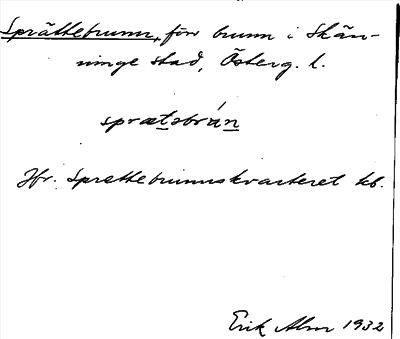 Sprättebrunn, förr brunn i Skän-
ninge stad, Österg. l.
sprætsbrán
Jfr. Sprettebrunnskvarteret kb.
Erik Alm 1932